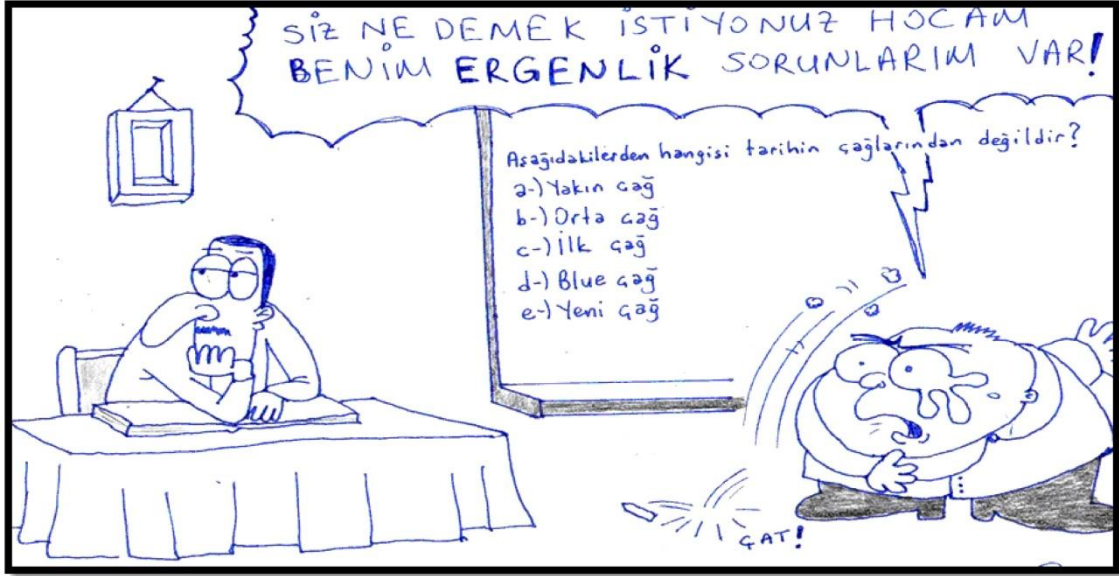 SİZ NE DEMEK İSTİYONUZ HOCAM
BENİM ERGENLİK SORUNLARIM VAR!
Aşağıdakilerden hangisi tarihin çağlarından değildir?
a-) Yakın çağ
b-) Orta çağ
c-) İlk çağ
d-) Blue çağ
e-) Yeni çağ
ÇAT!